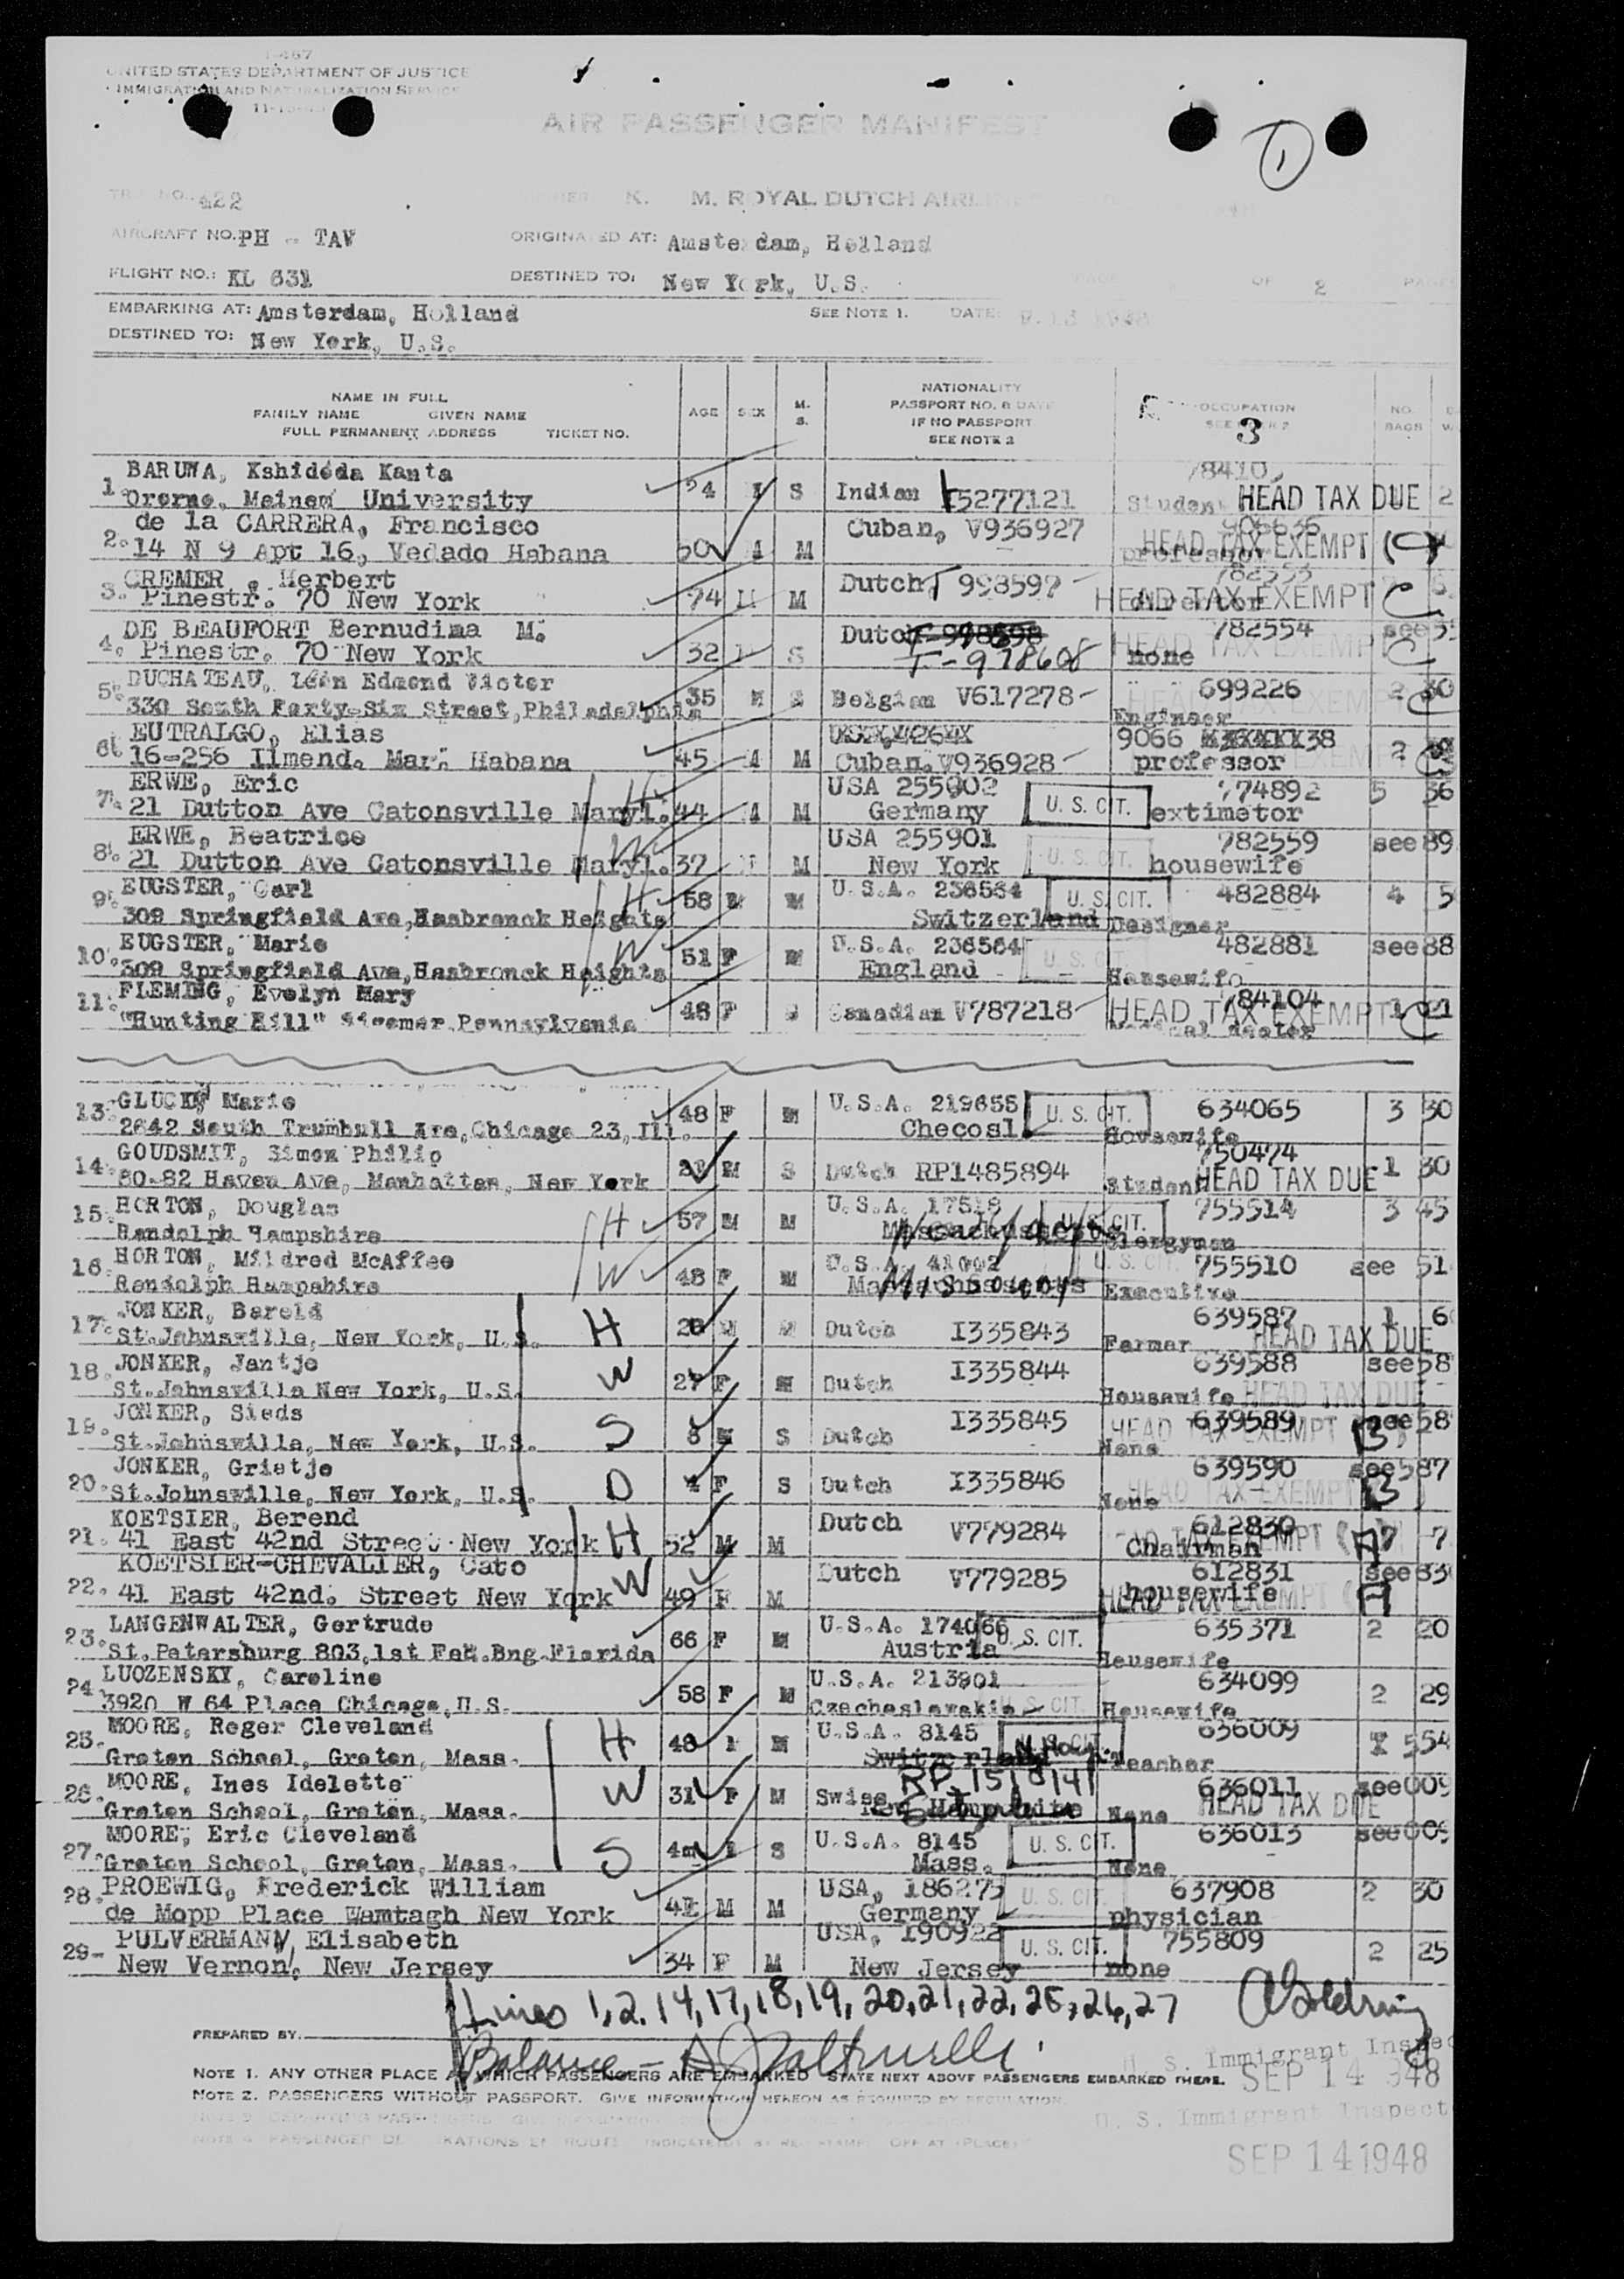 I-467
UNITED STATES DEPARTMENT OF JUSTICE
IMMIGRATION AND NATURALIZATION SERVICE
AIR PASSENGER MANIFEST
1
NO. 422
K. M. ROYAL DUTCH
AIRCRAFT NO. PH - TAV
ORIGINATED AT: Amsterdam, Holland
FLIGHT NO.: KL 631
DESTINED TO: New York, U.S.
OF 2
EMBARKING AT: Amsterdam, Holland
SEE NOTE 1. DATE:
DESTINED TO: New York, U.S.
NAME IN FULL
FAMILY NAME GIVEN NAME
FULL PERMANENT ADDRESS TICKET NO.
AGE SEX M. S.
NATIONALITY
PASSPORT NO. & DATE
IF NO PASSPORT
SEE NOTE 2
OCCUPATION
3
NO. BAGS
1 BARUWA, Kshidoda Kanta
University
S Indian I5277121 Student HEAD TAX DUE 1 2
2. de la CARRERA, Francisco
14 N 9 Apt 16, Vedado Habana
50 M M Cuban, V936927 906636 professor HEAD TAX EXEMPT
3. CREMER, Herbert
Pinestr. 70 New York
74 M Dutch 998597 782553 director HEAD TAX EXEMPT C
4. DE BEAUFORT Bernudima M.
Pinestr. 70 New York
32 S Dutch 782554 none see
T-978608
5. DUCHATEAU, Léon Edmond Victor
330 South Forty-Six Street, Philadelphia
35 M Belgian V617278 699226 Engineer 2 30
6. EUTRALGO, Elias
16-256 Ilmend. Mar. Habana
45 M M Cuban. V936928 9066 38 professor 2
7. ERWE, Eric
21 Dutton Ave Catonsville Maryl.
H 44 M M USA 255902 Germany U. S. CIT. 774892 extimetor 5 36
8. ERWE, Beatrice
21 Dutton Ave Catonsville Maryl.
W 37 M USA 255901 New York U. S. CIT. 782559 housewife see 89
9. EUGSTER, Carl
309 Springfield Ave, Hasbrouck Heights
H 58 M M U.S.A. 236564 Switzerland U. S. CIT. 482884 Designer 4 5
10. EUGSTER, Marie
309 Springfield Ave, Hasbrouck Heights
W 51 F M U.S.A. 236564 England U. S. CIT. 482881 Housewife see 88
11. FLEMING, Evelyn Mary
"Hunting Hill" Pennsylvania
48 F S Canadian V787218 784104 Medical doctor HEAD TAX EXEMPT 1 21
13. GLUCK, Marie
2642 South Trumbull Ave, Chicago 23, Ill.
48 F M U.S.A. 219655 Checosl. U. S. CIT. 634065 Housewife 3 30
14. GOUDSMIT, Simon Philip
80-82 Haven Ave, Manhattan, New York
M S Dutch RP1485894 750474 Student HEAD TAX DUE 1 30
15. HORTON, Douglas
Randolph Hampshire
H 57 M M U.S.A. 17518 U. S. CIT. 755514 Clergyman 3 45
16. HORTON, Mildred McAffee
Randolph Hampshire
W 48 F M U.S.A. 41002 Missouri U. S. CIT. 755510 Executive see 51
17. JONKER, Bareld
St. Johnsville, New York, U.S.
H M M Dutch I335843 639587 Farmer HEAD TAX DUE 1 6
18. JONKER, Jantje
St. Johnsville New York, U.S.
W 27 F M Dutch I335844 639588 Housewife HEAD TAX DUE see 58
19. JONKER, Sieds
St. Johnsville, New York, U.S.
S M S Dutch I335845 639589 None HEAD TAX EXEMPT B see 58
20. JONKER, Grietje
St. Johnsville, New York, U.S.
D 4 F S Dutch I335846 639590 None HEAD TAX EXEMPT B see 587
21. KOETSIER, Berend
41 East 42nd Street New York
H 52 M M Dutch V779284 612830 Chairman A 7 7
22. KOETSIER-CHEVALIER, Cato
41 East 42nd. Street New York
W 49 F M Dutch V779285 612831 housewife HEAD TAX EXEMPT A see 83
23. LANGENWALTER, Gertrude
St. Petersburg 803, 1st Fed. Bng. Florida
66 F M U.S.A. 174066 Austria U. S. CIT. 635371 Housewife 2 20
24 LUOZENSKY, Caroline
3920 W 64 Place Chicago, U.S.
58 F M U.S.A. 213901 Czechoslovakia U. S. CIT. 634099 Housewife 2 29
25. MOORE, Roger Cleveland
Groton School, Groton, Mass.
H 48 M U.S.A. 8145 Switzerland 636009 Teacher 554
26. MOORE, Ines Idelette
Groton School, Groton, Mass.
W 31 F M Swiss RP. 1518141 636011 None HEAD TAX DUE see 009
27. MOORE, Eric Cleveland
Groton School, Groton, Mass.
S 4m S U.S.A. 8145 Mass. U. S. CIT. 636013 None see 009
28. PROEWIG, Frederick William
de Mopp Place Wamtagh New York
M M USA, 186275 Germany U. S. CIT. 637908 physician 2 30
29- PULVERMANN, Elisabeth
New Vernon, New Jersey
34 F M USA, 190922 New Jersey U. S. CIT. 755809 none 2 25
Lines 1, 2, 14, 17, 18, 19, 20, 21, 22, 25, 26, 27
PREPARED BY.
Balance -
U. S. Immigrant Inspec
NOTE 1. ANY OTHER PLACE AT WHICH PASSENGERS ARE EMBARKED STATE NEXT ABOVE PASSENGERS EMBARKED THERE.
SEP 14 1948
NOTE 2. PASSENGERS WITHOUT PASSPORT. GIVE INFORMATION HEREON AS REQUIRED BY REGULATION.
U. S. Immigrant Inspect
SEP 14 1948